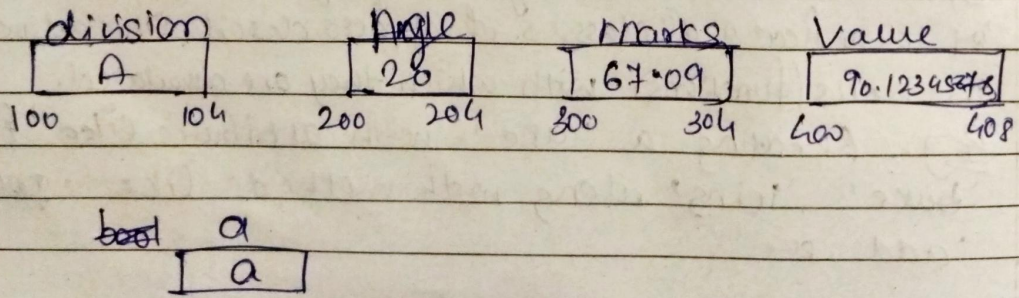 division Angle marks Value
A 20 .67.09 90.12345678
100 104 200 204 300 304 400 408
bool a
a